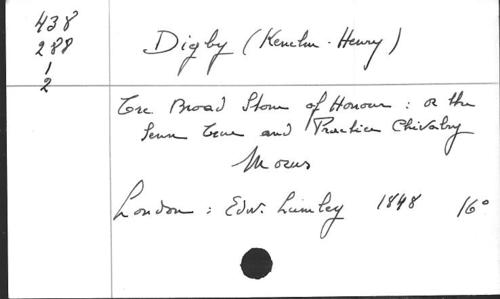 438
288
1
2
Digby (Kenelm-Henry)
The Broad Stone of Honour : or the
Sense True and Practice Chivalry
Morus
London : Edw. Lumley 1848 16°